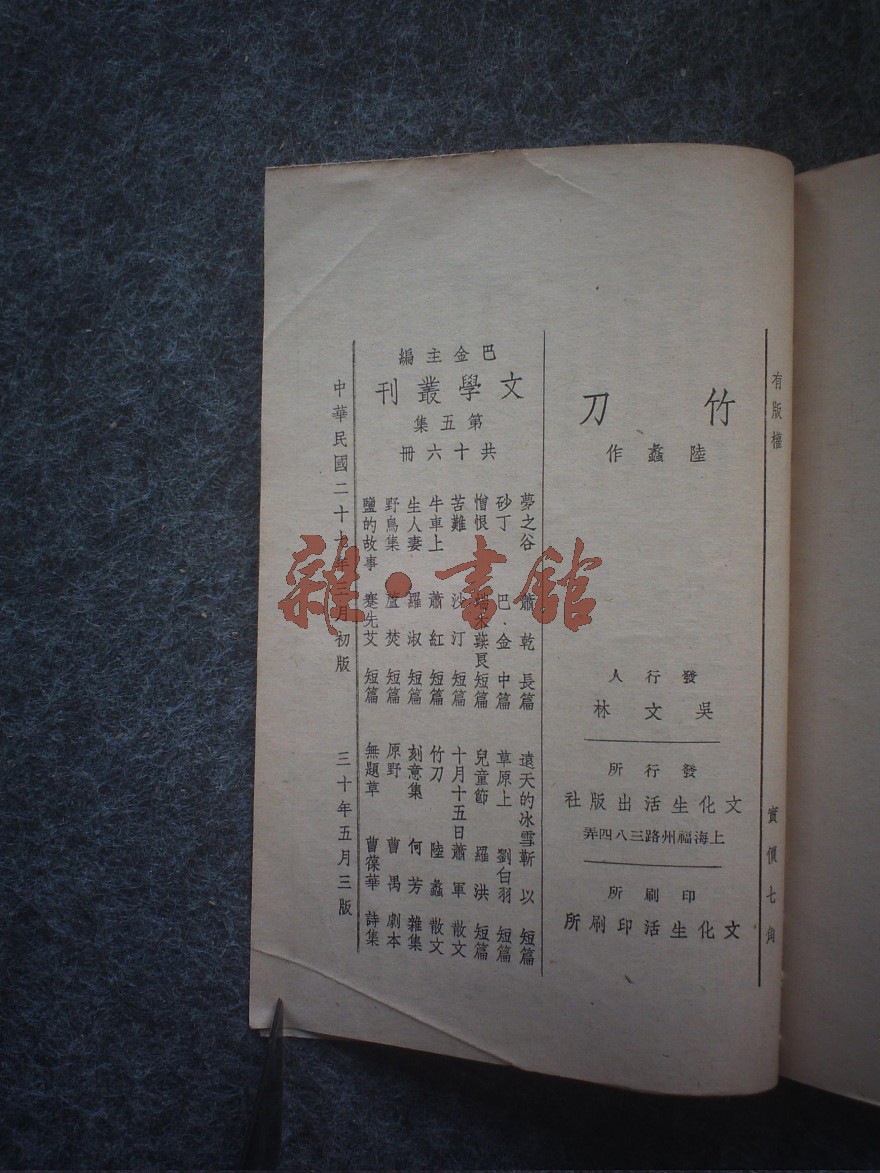 有版權
實價七角
竹刀
陸蠡作
發行人
吳文林
發行所
文化生活出版社
上海福州路三八四弄
印刷所
文化生活印刷所
巴金主編
文學叢刊
第五集
共十六冊
夢之谷 蕭乾 長篇
砂丁 巴·金 中篇
憎恨 端木蕻良 短篇
苦難 沙汀 短篇
牛車上 蕭紅 短篇
生人妻 羅淑 短篇
野鳥集 蘆焚 短篇
鹽的故事 蹇先艾 短篇
遠天的冰雪 靳以 短篇
草原上 劉白羽 短篇
兒童節 羅洪 短篇
十月十五日 蕭軍 散文
竹刀 陸蠡 散文
刻意集 何芳 雜集
原野 曹禺 劇本
無題草 曹葆華 詩集
中華民國二十七年三月初版
三十年五月三版
雜·書館